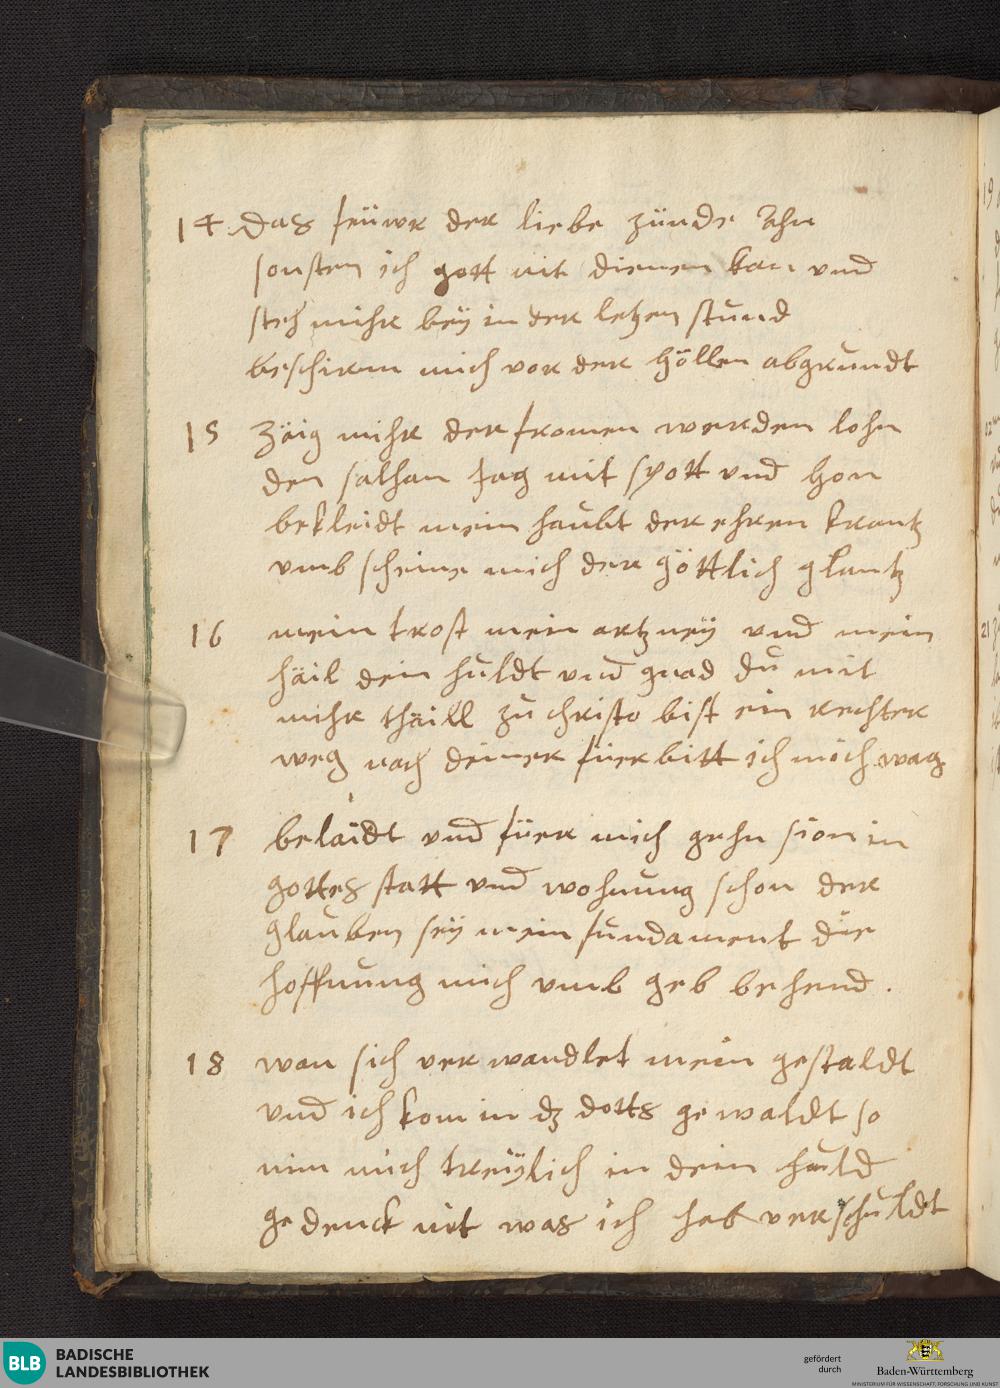 14 Das feüwr der liebe zünde Ahn
sonsten ich gott nit dienen kan und
steh mihr beÿ in der letzen stund
beschirm mich vor der höllen abgrundt
15 Zäig mihr der fromen werden lohn
den sathan jag mit spott und hon
bekleidt mein haubt der ehren krantz
umb scheine mich der göttlich glantz
16 mein trost mein artzneÿ und mein
häil dein huldt und gnad du mit
mihr thäill zu christo bist ein rechter
weg nach deiner fürbitt ich mich wag
17 belaidt und füer mich gehn sion in
gottes statt und wohnung schon der
glauben seÿ mein fundament die
hoffnung mich umb geb behend.
18 wan sich verwandlet mein gestaldt
und ich kom in dz dotts gewaldt so
nim mich treÿlich in dein huld
gedenck nit was ich hab verschuldt
19
21
BLB
BADISCHE
LANDESBIBLIOTHEK
gefördert
durch
Baden-Württemberg
MINISTERIUM FÜR WISSENSCHAFT, FORSCHUNG UND KUNST